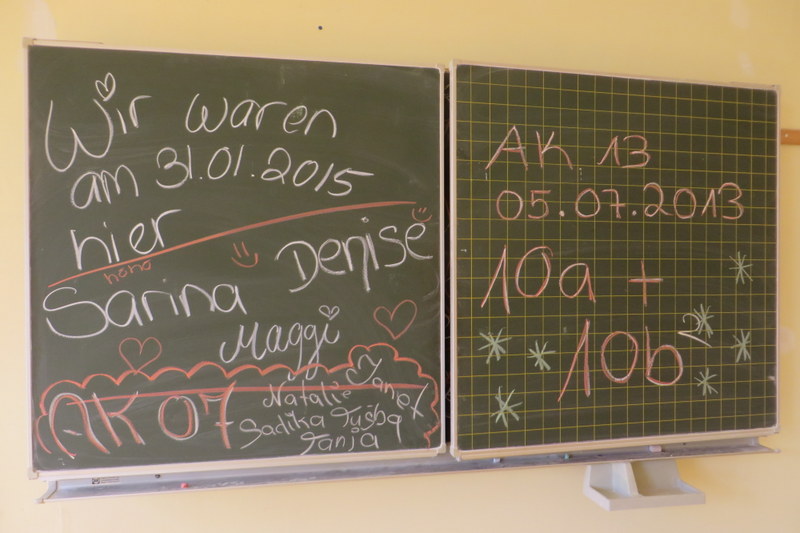 Wir waren
am 31.01.2015
hier
Denise
Sarina
Maggi
AK 07
Natalie
Sadika Tuğba
Tanja
AK 13
05.07.2013
10a +
10b²